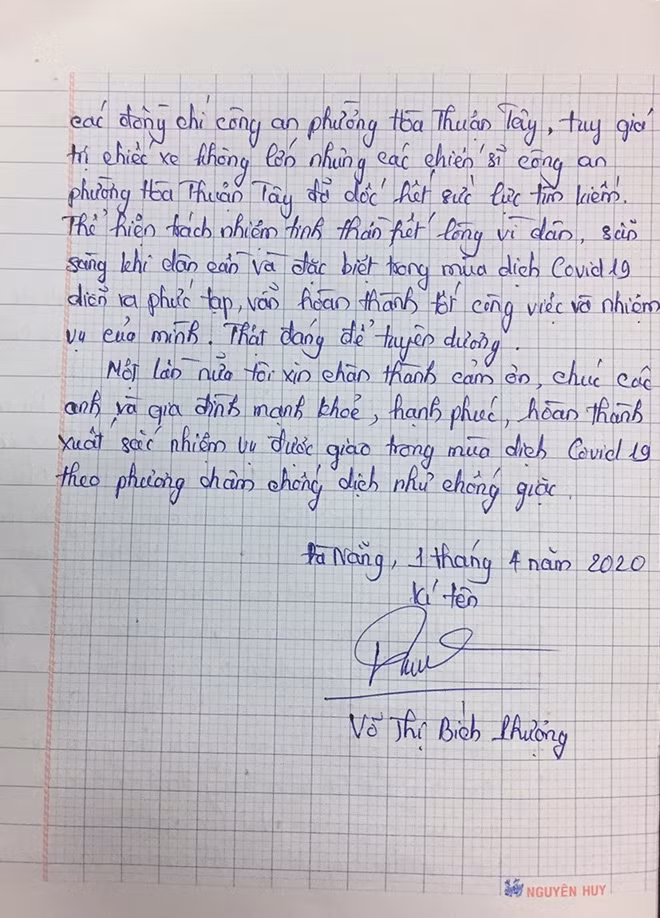 các đồng chí công an phường Hòa Thuận Tây, tuy giá
trị chiếc xe không lớn nhưng các chiến sĩ công an
phường Hòa Thuận Tây đã dốc hết sức lực tìm kiếm.
Thể hiện trách nhiệm tinh thần hết lòng vì dân, sẵn
sàng khi dân cần và đặc biệt trong mùa dịch Covid 19
diễn ra phức tạp, vẫn hoàn thành tốt công việc và nhiệm
vụ của mình. Thật đáng để tuyên dương.
Một lần nữa tôi xin chân thành cảm ơn, chúc các
anh và gia đình mạnh khoẻ, hạnh phúc, hoàn thành
xuất sắc nhiệm vụ được giao trong mùa dịch Covid 19
theo phương châm chống dịch như chống giặc.
Đà Nẵng, 1 tháng 4 năm 2020
Kí tên
Võ Thị Bích Phượng
NGUYÊN HUY